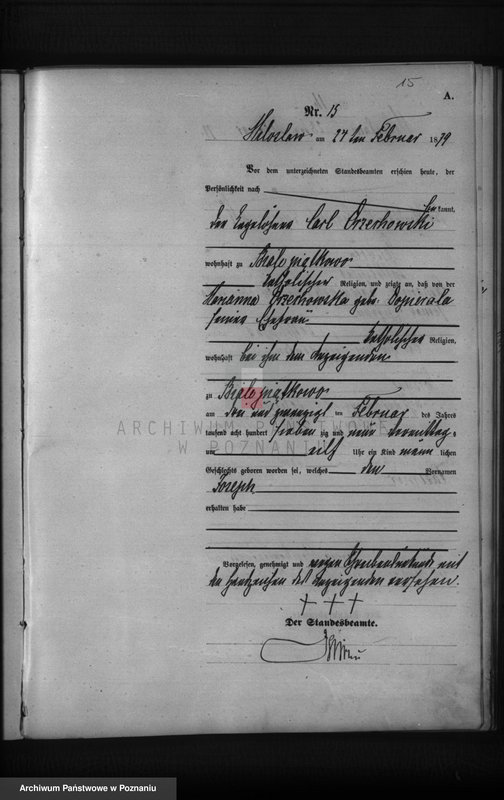 15
A.
Nr. 15
Miloslaw am 24 ten Februar 1879
Vor dem unterzeichneten Standesbeamten erschien heute, der
Persönlichkeit nach
be kannt,
der Carl Orzechowski
wohnhaft zu Bialepiątkowo
katholischer Religion, und zeigte an, daß von der
Marianna Orzechowska geb. Dopierala
seiner Ehefrau
katholischer Religion,
wohnhaft bei ihm dem Anzeigenden
zu Bialepiątkowo
am drei und zwanzigsten Februar des Jahres
tausend acht hundert sieben zig und neun Vormittags
um eilf Uhr ein Kind männ lichen
Geschlechts geboren worden sei, welches den Vornamen
Joseph
erhalten habe
Vorgelesen, genehmigt und wegen Schreibensunkunde mit
den Handzeichen des Anzeigenden versehen.
+ + +
Der Standesbeamte.
ARCHIWUM PAŃSTWOWE
W POZNANIU
Archiwum Państwowe w Poznaniu